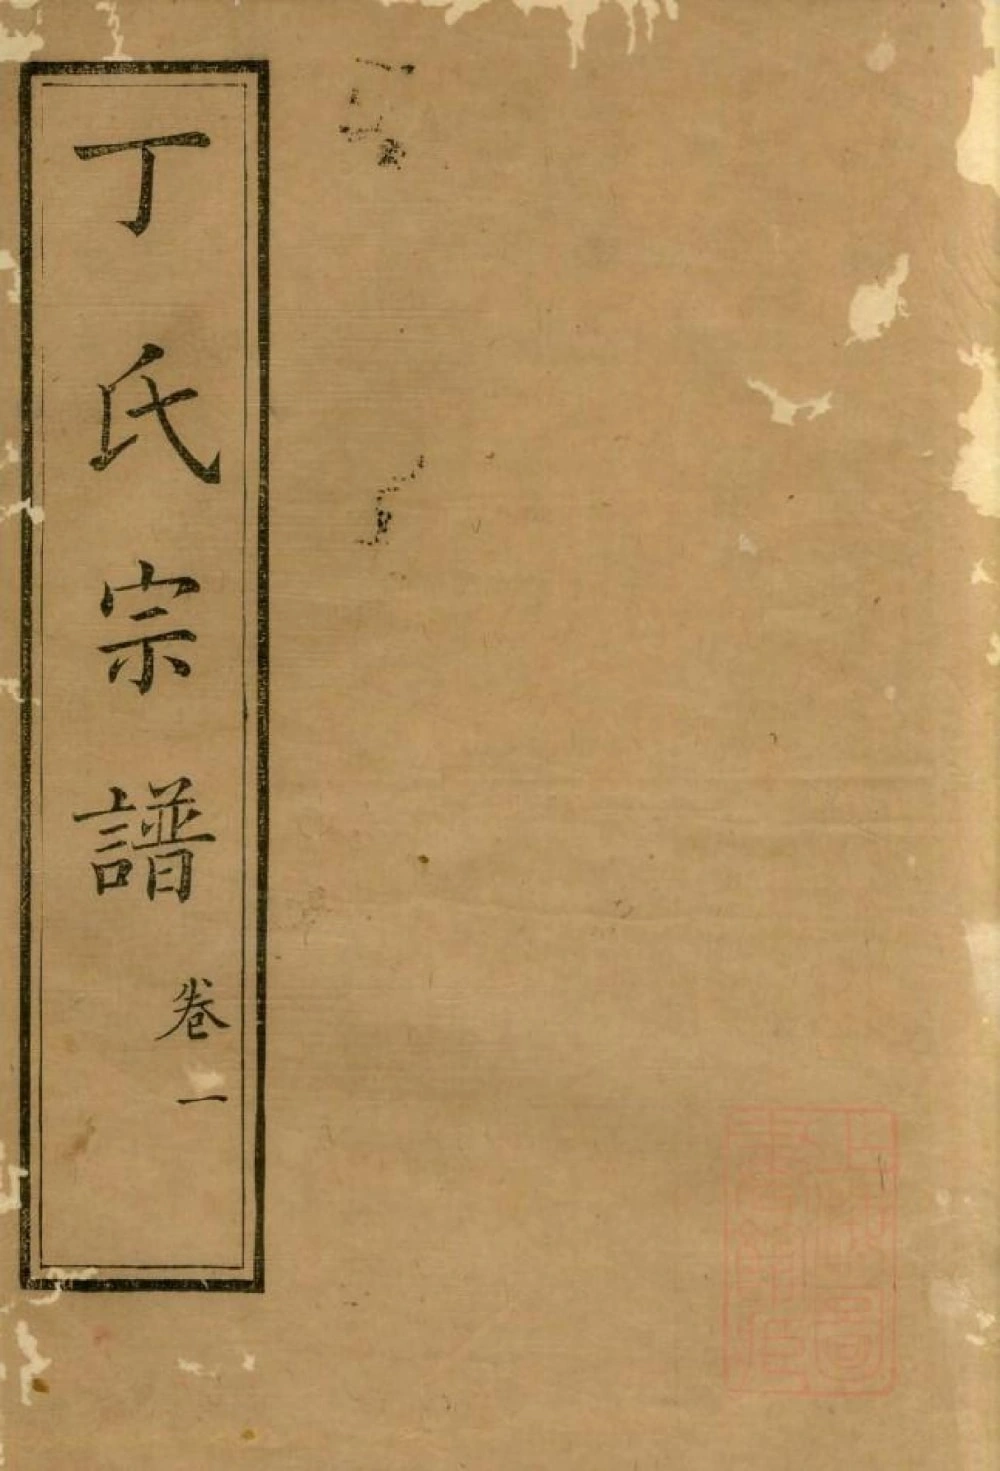 丁氏宗譜 卷一